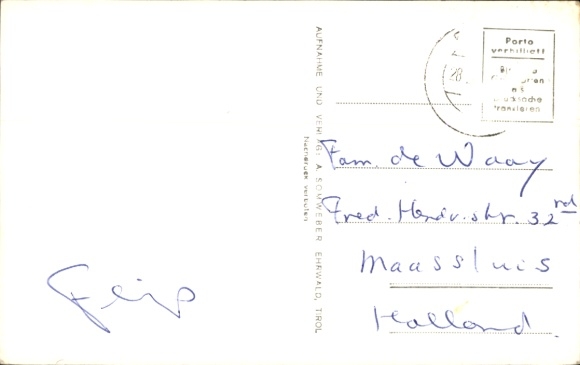 AUFNAHME UND VERLAG: A. SOMWEBER EHRWALD, TIROL
Nachdruck verboten
Porto
verbilligt
28.
frankieren
Fam. de Waay
Fred. Hendr. str. 32 rd
Maassluis
Holland.
Flip